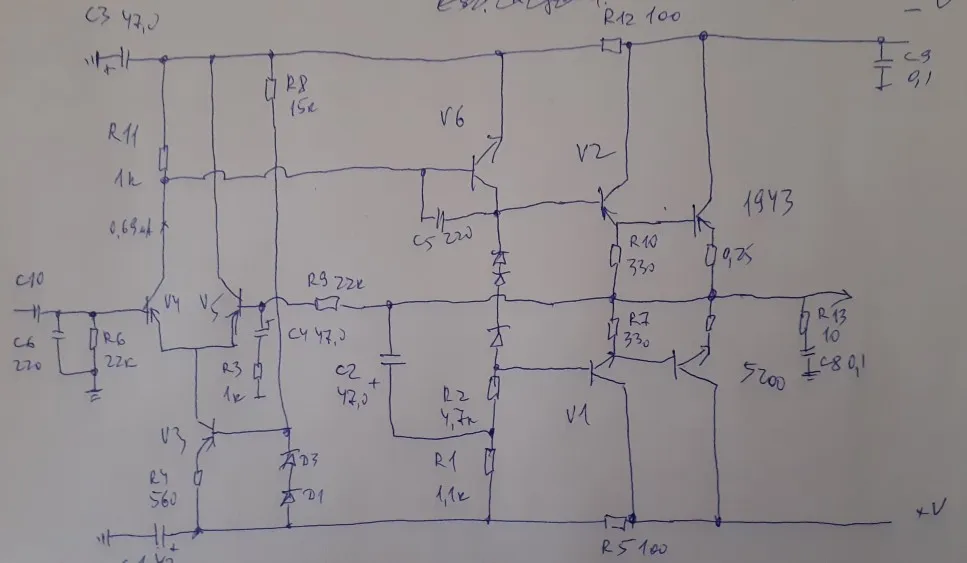 C3 47,0
R12 100
- V
C9
0,1
R8
15к
V6
R11
1к
V2
1943
0,69мА
C5 220
R10
330
0,25
C10
V4
V5
R9 22к
C6
220
R6
22к
C4 47,0
R7
330
R13
10
C8 0,1
R3
1к
C2
47,0 +
R2
4,7к
5200
V1
V3
R4
560
D3
D1
R1
1,1к
+V
R5 100